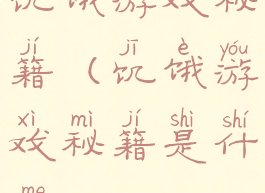 饥饿游戏秘
jí jī è yóu
籍（饥饿游
xì mì jí shì shí
戏秘籍是什
me